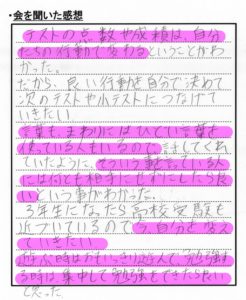 ・会を聞いた感想
テストの点数や成績は、自分
たちの行動で変わるということがわ
かった。
だから、良い行動を自分で決めて
次のテストや小テストにつなげて
いきたい
言葉も、まわりにはひどい言葉を
使っている人もいるので、話してくれ
ていたように、そういう事を言っている人
には何でも相手にせずにしたら良
いという事がわかった。
3年生になったら高校受験も
近づいているので、今、自分を変え
ていきたい
遊ぶ時はおもいっきり遊んで、勉強す
る時は集中して勉強をできたら良い
と思った。